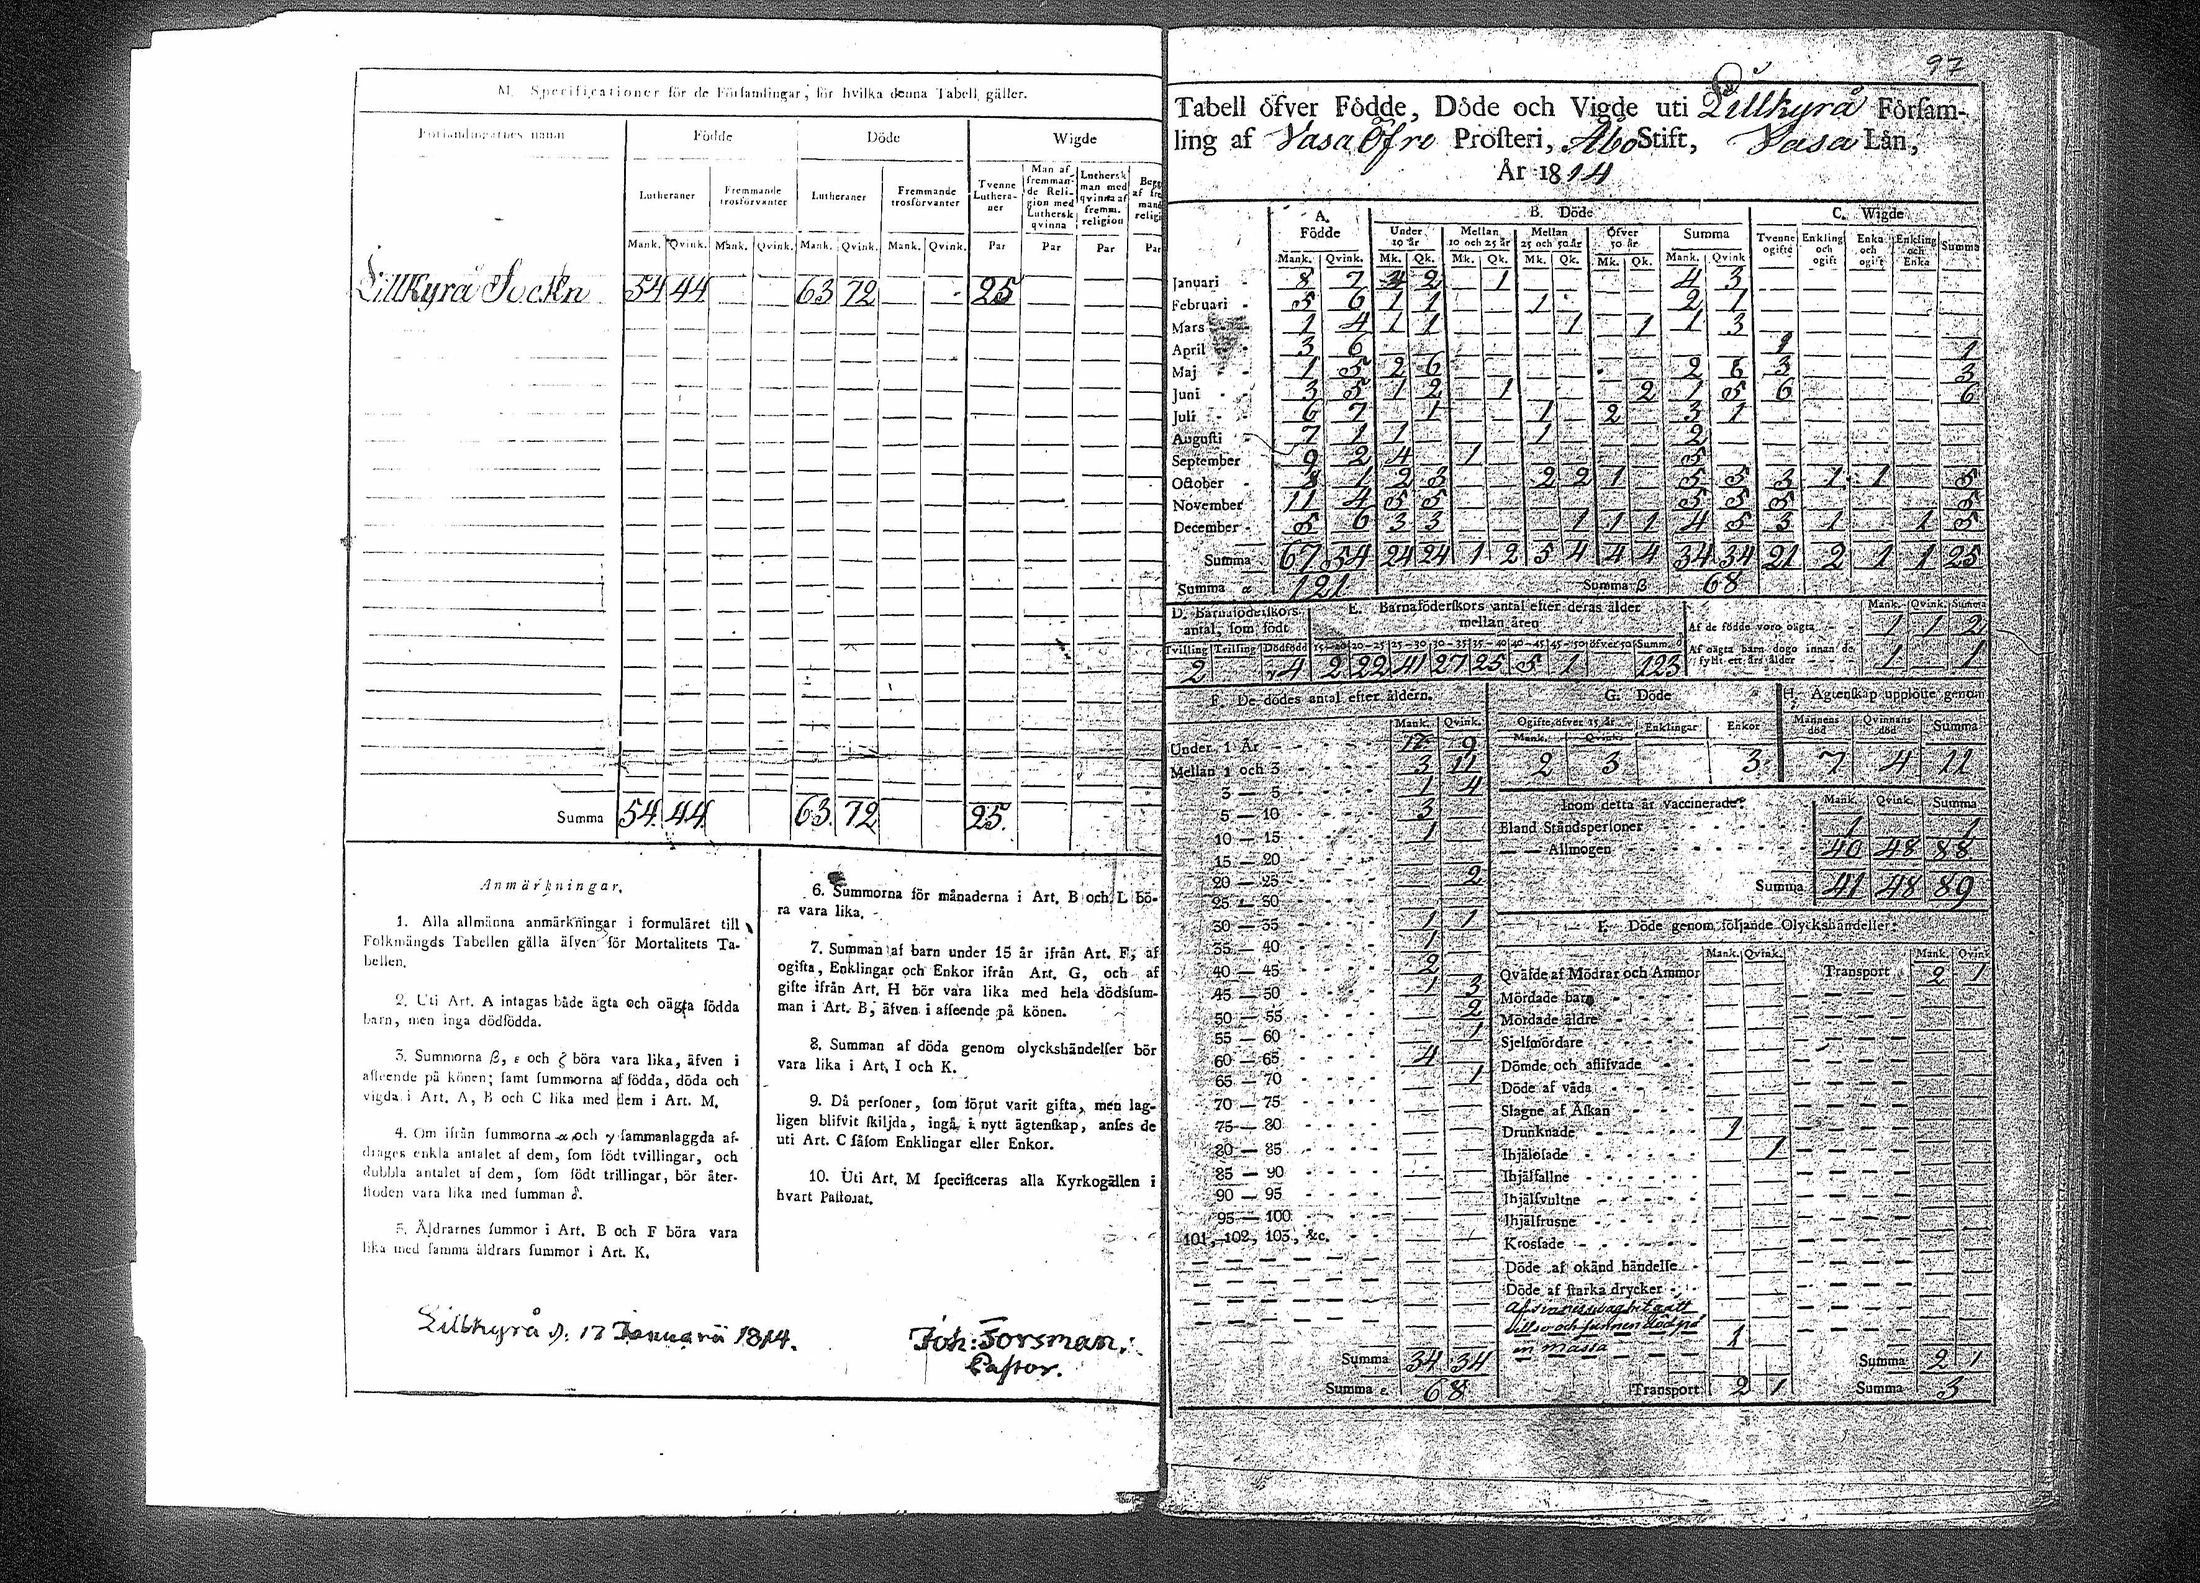 M. Specificationer för de Församlingar, för hvilka denna Tabell gäller.
Församlingarnes namn Födde Döde Wigde
Lutheraner Fremmande trosförvanter Lutheraner Fremmande trosförvanter Tvenne Lutheraner Man af fremmande Religion med Luthersk qvinna Luthersk man med qvinna af fremm. religion
Mank. Qvink. Mank. Qvink. Mank. Qvink. Mank. Qvink. Par Par Par Par
Lillkyrå Sockn 54 44 63 72 25
Summa 54. 44. 63. 72 25.
Anmärkningar.
1. Alla allmänna anmärkningar i formuläret till
Folkmängds Tabellen gälla äfven för Mortalitets Ta-
bellen.
2. Uti Art. A intagas både ägta och oägta födda
barn, men inga dödfödda.
3. Summorna β, ε och ζ böra vara lika, äfven i
afseende på könen; samt summorna af födda, döda och
vigda i Art. A, B och C lika med dem i Art. M.
4. Om ifrån summorna α och γ sammanlaggda af-
drages enkla antalet af dem, som födt tvillingar, och
dubbla antalet af dem, som födt trillingar, bör åter-
stoden vara lika med summan δ.
5. Äldrarnes summor i Art. B och F böra vara
lika med samma äldrars summor i Art. K.
6. Summorna för månaderna i Art. B och L bö-
ra vara lika.
7. Summan af barn under 15 år ifrån Art. F, af
ogifta, Enklingar och Enkor ifrån Art. G, och af
gifte ifrån Art. H bör vara lika med hela dödssum-
man i Art. B, äfven i afseende på könen.
8. Summan af döda genom olyckshändelser bör
vara lika i Art. I och K.
9. Då personer, som förut varit gifta, men lag-
ligen blifvit skiljda, ingå i nytt ägtenskap, anses de
uti Art. C såsom Enklingar eller Enkor.
10. Uti Art. M specificeras alla Kyrkogällen i
hvart Pastorat.
Lillkyrå d. 17 Januarii 1814.
Joh: Forsman.
Pastor.
97
Tabell öfver Födde, Döde och Vigde uti Lillkyrå Församl-
ling af Vasa Öfre Prosteri, Åbo Stift, Vasa Län,
År 1814
A. Födde B. Döde C. Wigde
Under 10 år Mellan 10 och 25 år Mellan 25 och 50 år Öfver 50 år Summa Tvenne ogifte Enkling och ogift Enka och ogift Enkling och Enka Summa
Mank. Qvink. Mk. Qk. Mk. Qk. Mk. Qk. Mk. Qk. Mank. Qvink
Januari 8 7 2 1 4 3
Februari 5 6 1 1 1 2 1
Mars 1 4 1 1 1 1 1 3
April 3 6 1 1
Maj 1 5 2 6 2 6 3 3
Juni 3 5 1 2 1 2 1 5 6 6
Juli 6 7 1 1 2 3 1
Augusti 7 1 1 1 2
September 9 2 4 1 5
October 8 1 2 3 2 2 1 5 5 3 1 1 5
November 11 4 5 5 5 5 5 5
December 5 6 3 3 1 1 1 4 5 3 1 1 5
Summa 67 54 24 24 1 2 5 4 4 4 34 34 21 2 1 1 25
Summa α 121 Summa β 68
D. Barnaföderskors antal, som födt
Tvilling Trilling Dödfödd
2 4
E. Barnaföderskors antal efter deras ålder mellan åren
15—20 20—25 25—30 30—35 35—40 40—45 45—50 öfver 50 Summ. δ
2 22 41 27 25 5 1 123
Mank. Qvink. Summa
Af de födde voro oägta 1 1 2
Af oägta barn dogo innan de fyllt ett års ålder 1 1
F. De dödes antal efter åldern.
Mank. Qvink.
Under 1 År 17 9
Mellan 1 och 3 3 11
3 — 5 1 4
5 — 10 3
10 — 15 1
15 — 20
20 — 25 2
25 — 30
30 — 35 1 1
35 — 40 1
40 — 45 2
45 — 50 1 3
50 — 55 2
55 — 60 1
60 — 65 4
65 — 70 1
70 — 75
75 — 80
80 — 85
85 — 90
90 — 95
95 — 100
101, 102, 103, &c.
Summa 34 34
Summa ε. 68
G. Döde
Ogifte öfver 15 år Enklingar Enkor
Mank. Qvink.
2 3 3
H. Ägtenskap upplöste genom
Mannens död Qvinnans död Summa
7 4 11
Inom detta år vaccinerade: Mank. Qvink. Summa
Bland Ståndspersoner 1 1
— — Allmogen 40 48 88
Summa 41 48 89
I. Döde genom följande Olyckshändelser:
Mank. Qvink. Mank. Qvink
Qväfde af Mödrar och Ammor Transport 2 1
Mördade barn
Mördade äldre
Sjelfmördare
Dömde och aflifvade
Döde af våda
Slagne af Åskan
Drunknade 1
Ihjälösade 1
Ihjälfallne
Ihjälsvultne
Ihjälfrusne
Krossade
Döde af okänd händelse
Döde af starka drycker
Af sinnessvaghet gått
villse och funnen död på
en Måssa 1
Summa 2 1
Transport 2 1 Summa 3